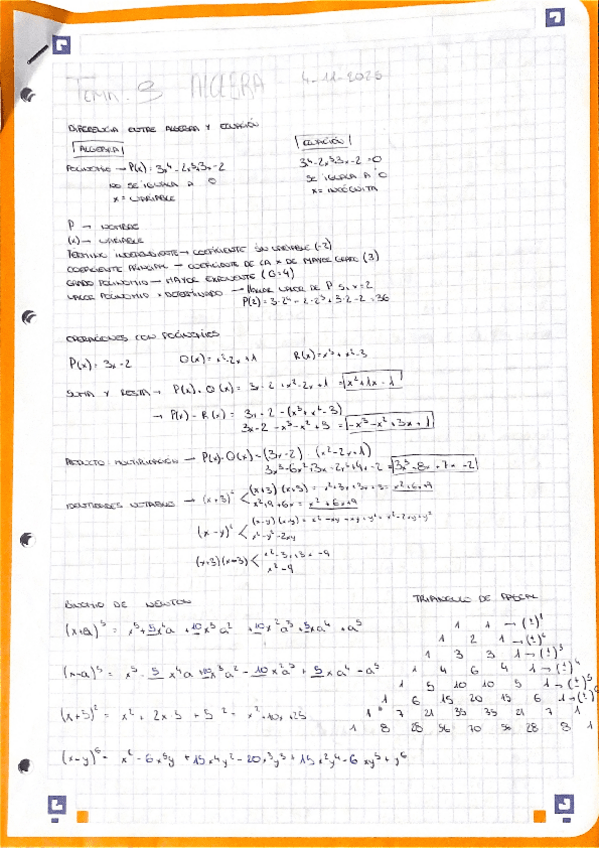 TEMA. 3 ALGEBRA 4-12-2025
DIFERENCIA ENTRE ALGEBRA Y ECUACIÓN
ALGEBRA
ECUACIÓN
POLINOMIO → P(x) = 3x⁴ - 2x³ 3x - 2
3x⁴ - 2x³ 3x - 2 = 0
NO SE IGUALA A 0
SE IGUALA A 0
x = VARIABLE
x = INCÓGNITA
P → NOMBRE
(x) → VARIABLE
TERMINO INDEPENDIENTE → COEFICIENTE SIN VARIABLE (-2)
COEFICIENTE PRINCIPAL → COEFICIENTE DE LA X DE MAYOR GRADO (3)
GRADO POLINOMIO → MAYOR EXPONENTE (G=4)
VALOR POLINOMIO x DETERMINADO → VALOR DE P si x = 2
P(2) = 3·2⁴ - 2·2³ + 3·2 - 2 = 36
OPERACIONES CON POLINOMIOS
P(x) = 3x - 2 Q(x) = x² - 2x + 1 R(x) = x³ + x² - 3
SUMA Y RESTA → P(x) + Q(x) = 3x - 2 + x² - 2x + 1 = x² + 1x - 1
→ P(x) - R(x) = 3x - 2 - (x³ + x² - 3)
3x - 2 - x³ - x² + 3 = -x³ - x² + 3x + 1
PRODUCTO MULTIPLICACIÓN → P(x)·Q(x) = (3x - 2) (x² - 2x + 1)
3x³ - 6x² + 3x - 2x² + 4x - 2 = 3x³ - 8x + 7x - 2
IDENTIDADES NOTABLES → (x+3)² < (x+3)(x+3) = x² + 3x + 3x + 9 = x² + 6x + 9
x² + 9 + 6x = x² + 6x + 9
(x-y)² < (x-y)(x-y) = x² - xy - xy + y² = x² - 2xy + y²
x² - y² - 2xy
(x+3)(x-3) < x² - 3x + 3x - 9
x² - 9
BINOMIO DE NEWTON
TRIANGULO DE PASCAL
(x+a)⁵ = x⁵ + 5x⁴a + 10x³a² + 10x²a³ + 5xa⁴ + a⁵
(x-a)⁵ = x⁵ - 5x⁴a + 10x³a² - 10x²a³ + 5xa⁴ - a⁵
(x+5)² = x² + 2x·5 + 5² = x² + 10x + 25
(x-y)⁶ = x⁶ - 6x⁵y + 15x⁴y² - 20x³y³ + 15x²y⁴ - 6xy⁵ + y⁶
1 1 → ( )¹
1 2 1 → ( )²
1 3 3 1 → ( )³
1 4 6 4 1 → ( )⁴
1 5 10 10 5 1 → ( )⁵
1 6 15 20 15 6 1 → ( )⁶
1 7 21 35 35 21 7 1
1 8 28 56 70 56 28 8 1